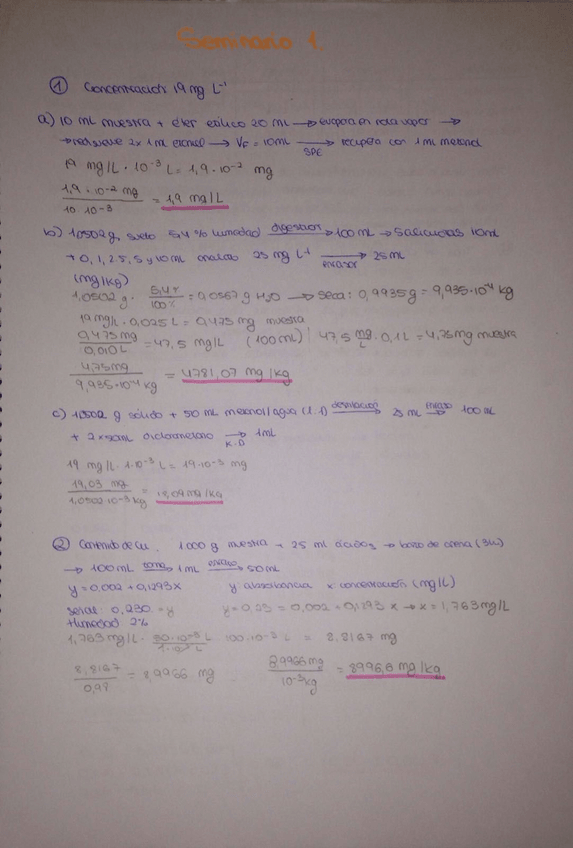 Seminario 1.
① Concentración 19 mg L⁻¹
a) 10 mL muestra + éter etílico 20 mL → evapora en rotavapor →
→ redisuelve 2x 1 mL etanol → VF = 10mL →SPE recupera con 1 mL metanol
19 mg/L · 10⁻³ L = 1,9 · 10⁻² mg
1,9 · 10⁻² mg / 10 · 10⁻³ = 1,9 mg/L
b) 1,0502 g, 5,4 % humedad digestión → 100 mL → 5 alícuotas 10mL
+ 0, 1, 2.5, 5 y 10 mL analito 25 mg L⁻¹ enrasar → 25 mL
(mg/kg)
1,0502 g · 5,4 / 100% = 0,0567 g H₂O → Seca: 0,9935g = 9,935·10⁻⁴ kg
19 mg/L · 0,025 L = 0,475 mg muestra
0,475 mg / 0,010 L = 47,5 mg/L (100 mL) 47,5 mg/L · 0,1 L = 4,75mg muestra
4,75mg / 9,935·10⁻⁴ kg = 4781,07 mg/kg
c) 1,0502 g sólido + 50 mL metanol/agua (1:1) destilación → 25 mL enraso → 100 mL
+ 2 x 50mL diclorometano → K.D 1mL
19 mg/L · 1·10⁻³ L = 19·10⁻³ mg
19,03 mg / 1,0502·10⁻³ kg = 18,09 mg/kg
② Contenido de Cu. 1.000 g muestra + 25 mL ácidos → baño de arena (3h)
→ 100 mL toma → 1 mL enraso → 50 mL
y = 0,002 + 0,1293x y absorbancia x concentración (mg/L)
señal: 0,230 = y y = 0,23 = 0,002 + 0,1293 x → x = 1,763 mg/L
Humedad 2%
1,763 mg/L · 50·10⁻³ L / 1·10⁻³ L 100·10⁻³ L = 8.8167 mg
8,8167 / 0,98 = 8,9966 mg 8,9966 mg / 10⁻³ kg = 8996,6 mg/kg